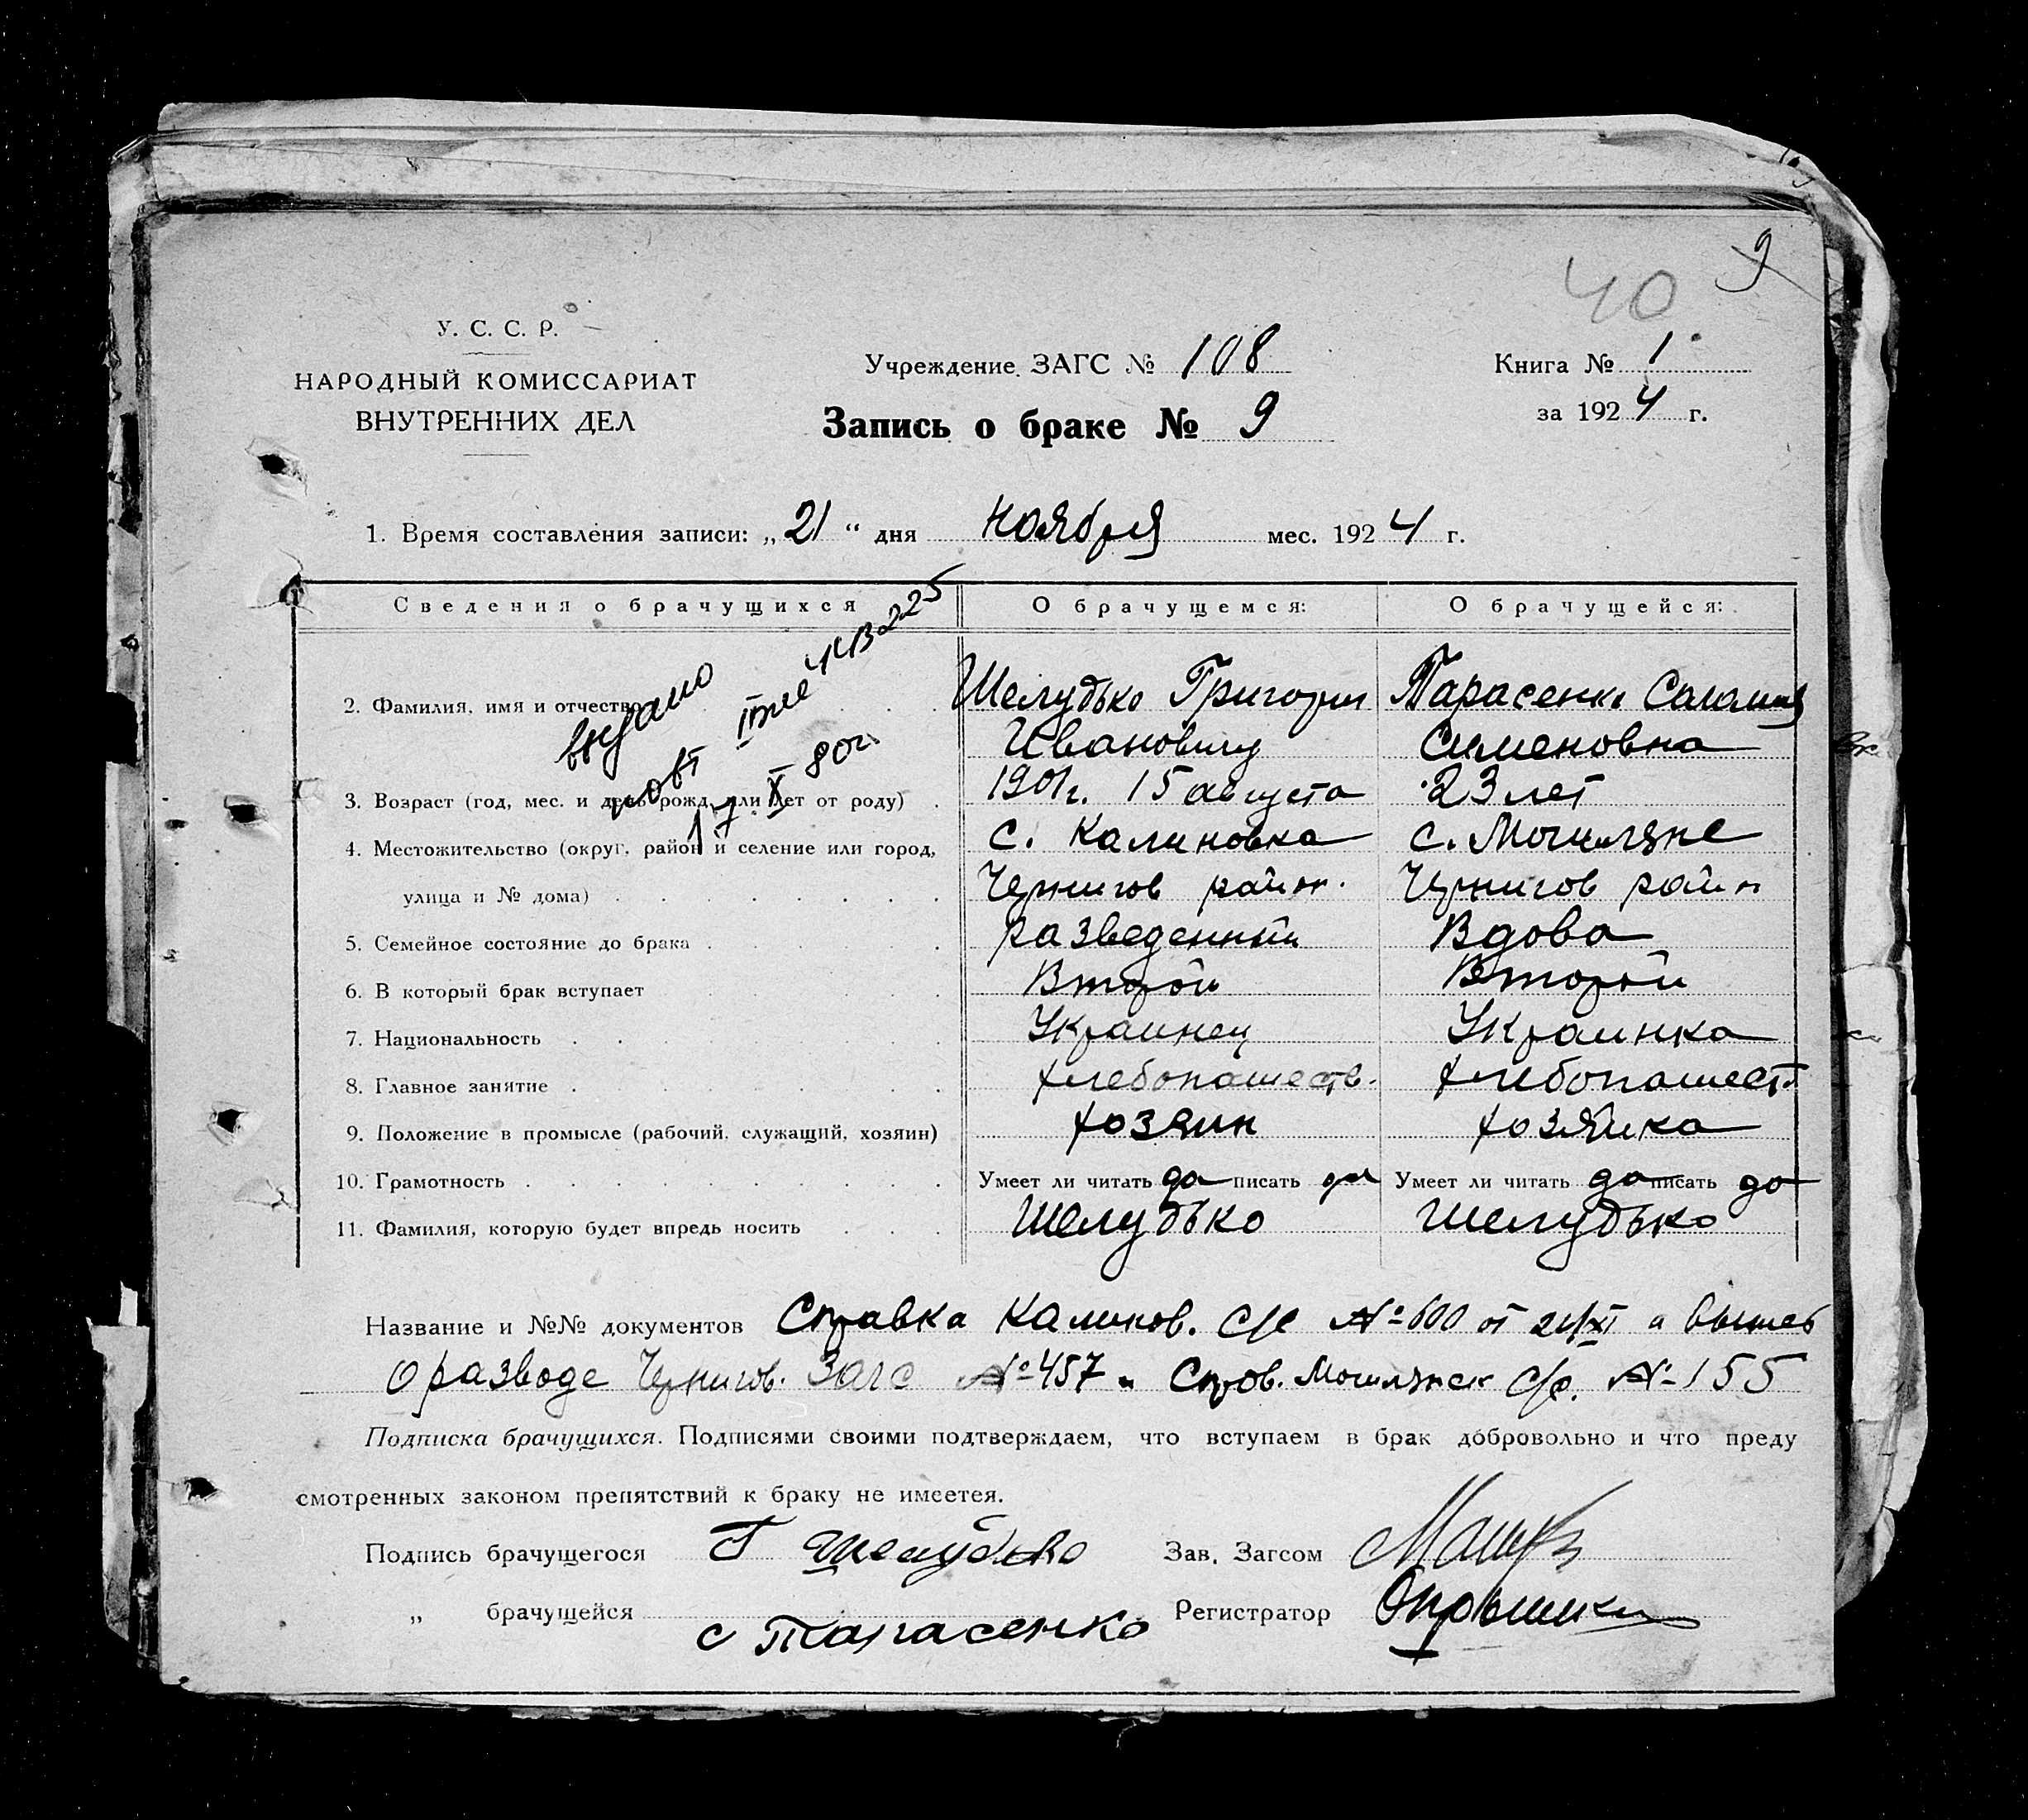 9
40
У. С. С. Р.
НАРОДНЫЙ КОМИССАРИАТ
ВНУТРЕННИХ ДЕЛ
Учреждение ЗАГС № 108
Книга № 1
за 1924 г.
Запись о браке № 9
1. Время составления записи: „21“ дня ноября мес. 1924 г.
Сведения о брачущихся О брачущемся: О брачущейся:
2. Фамилия, имя и отчество Шелудько Григорий Тарасенко
Ивановичу Сименовна
3. Возраст (год, мес. и день рожд. или лет от роду) 1901г. 15 августа 23 лет
4. Местожительство (округ, район и селение или город, с. Калиновка с. Могиляне
улица и № дома) Чернигов район. Чернигов район
5. Семейное состояние до брака разведенный Вдова
6. В который брак вступает Второй Второй
7. Национальность Украинец Украинка
8. Главное занятие хлебопашеств. хлебопашест.
9. Положение в промысле (рабочий, служащий, хозяин) хозяин хозяйка
10. Грамотность Умеет ли читать да писать да Умеет ли читать да писать да
11. Фамилия, которую будет впредь носить Шелудько Шелудько
выдано
повт
17 X 80г.
Название и №№ документов Справка Калинов. с/с № 600 от 21/XI и
о разводе Чернигов. Загс № 457 и Спров. с/с. № 155
Подписка брачущихся. Подписями своими подтверждаем, что вступаем в брак добровольно и что преду
смотренных законом препятствий к браку не имеется.
Подпись брачущегося Г Шелудько Зав. Загсом
„ брачущейся с Тарасенко Регистратор